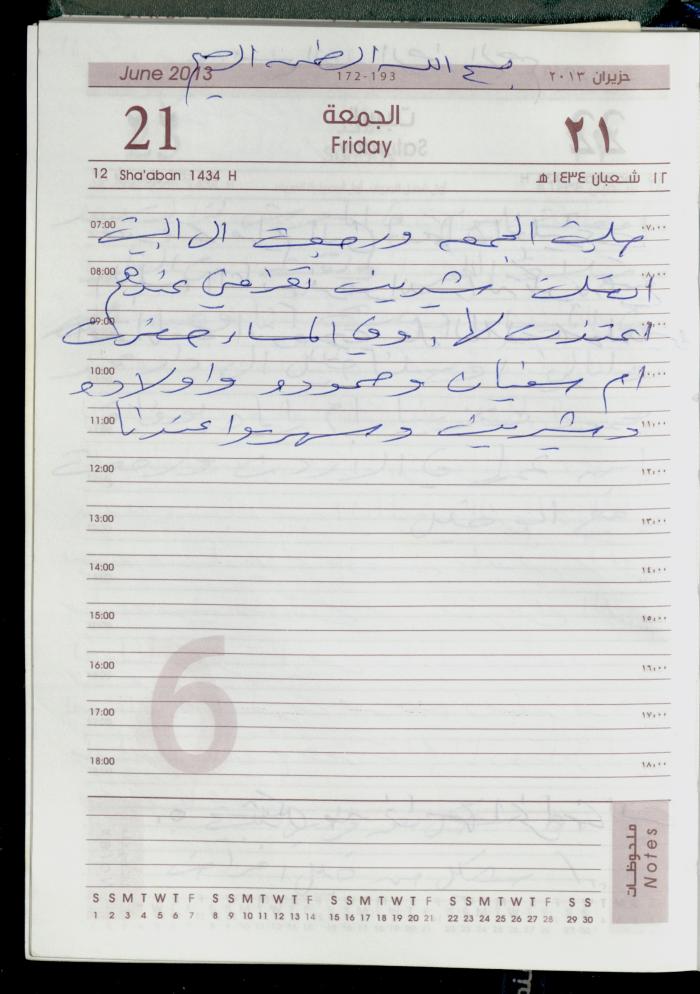 بسم الله الرحمن الرحيم
June 2013 172-193 حزيران ٢٠١٣
21 الجمعة ٢١
Friday
12 Sha'aban 1434 H ١٢ شعبان ١٤٣٤هـ
07:00 صليت الجمعه ورجعت الى البيت ٠٧:٠٠
08:00 اتصلت شيرين تعزمني عندهم ٠٨:٠٠
09:00 اعتذرت لها، وفي المساء حضرت ٠٩:٠٠
10:00 ام سفيان وحمودو واولادو ١٠:٠٠
11:00 وشيرين وسهروا عندنا ١١:٠٠
12:00 ١٢:٠٠
13:00 ١٣:٠٠
14:00 ١٤:٠٠
15:00 ١٥:٠٠
16:00 ١٦:٠٠
17:00 ١٧:٠٠
18:00 ١٨:٠٠
6
ملحوظات
Notes
S S M T W T F S S M T W T F S S M T W T F S S M T W T F S S
1 2 3 4 5 6 7 8 9 10 11 12 13 14 15 16 17 18 19 20 21 22 23 24 25 26 27 28 29 30